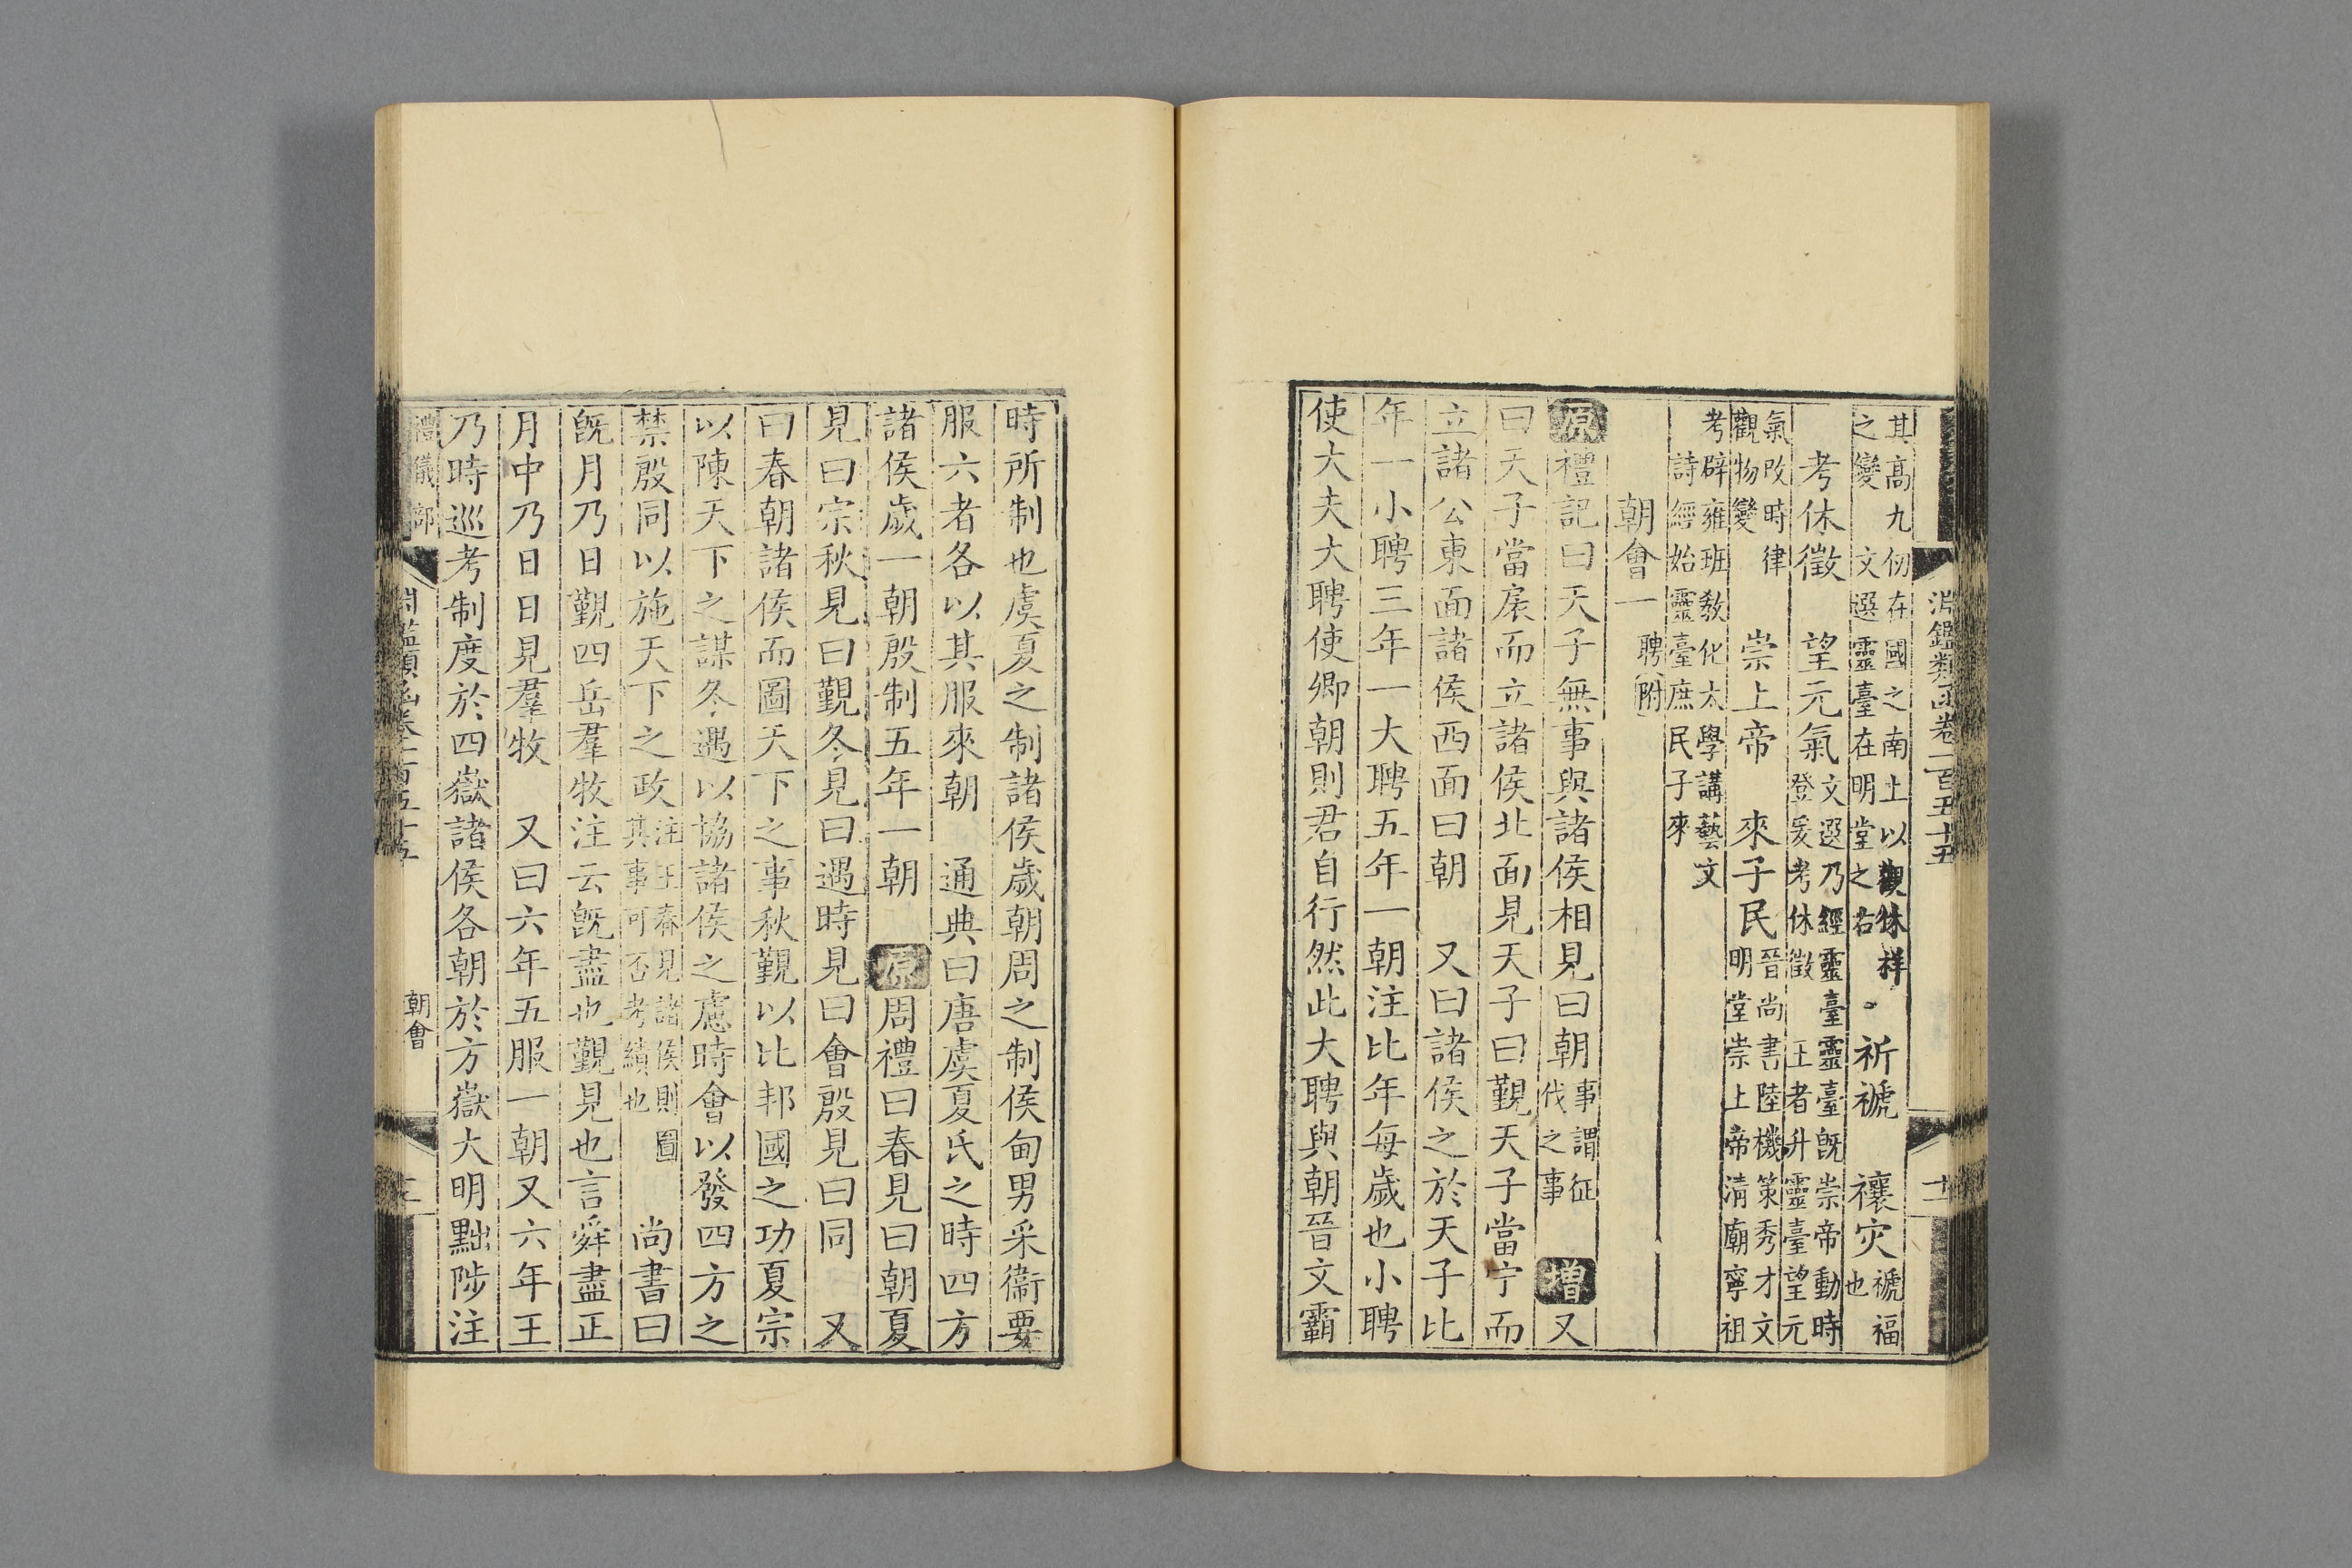 淵鑑類函卷一百五十五
十二
其高九仞在國之南上以觀休祥
之變 文選靈臺在明堂之右 祈禠 禳災 禠福也
考休徵 望元氣 文選乃經靈臺靈臺旣崇帝動時
登爰考休徵 王者升靈臺望元
氣改時律
觀物變 崇上帝 來子民 晉尚書陸機策秀才文
明堂崇上帝清廟寧祖
考辟雍班敎化太學講藝文
詩經始靈臺庶民子來
朝會一 聘附
原禮記曰天子無事與諸侯相見曰朝 事謂征伐之事 增又
曰天子當扆而立諸侯北面見天子曰覲天子當宁而
立諸公東面諸侯西面曰朝 又曰諸侯之於天子比
年一小聘三年一大聘五年一朝注比年每歲也小聘
使大夫大聘使卿朝則君自行然此大聘與朝晉文霸
時所制也虞夏之制諸侯歲朝周之制侯甸男采衞要
服六者各以其服來朝 通典曰唐虞夏氏之時四方
諸侯歲一朝殷制五年一朝 原周禮曰春見曰朝夏
見曰宗秋見曰覲冬見曰遇時見曰會殷見曰同 又
曰春朝諸侯而圖天下之事秋覲以比邦國之功夏宗
以陳天下之謀冬遇以協諸侯之慮時會以發四方之
禁殷同以施天下之政 注王春見諸侯則圖
其事可否考績也 尚書曰
旣月乃日覲四岳羣牧注云旣盡也覲見也言舜盡正
月中乃日日見羣牧 又曰六年五服一朝又六年王
乃時巡考制度於四嶽諸侯各朝於方嶽大明黜陟注
禮儀部
淵鑑類函卷一百五十五
朝會